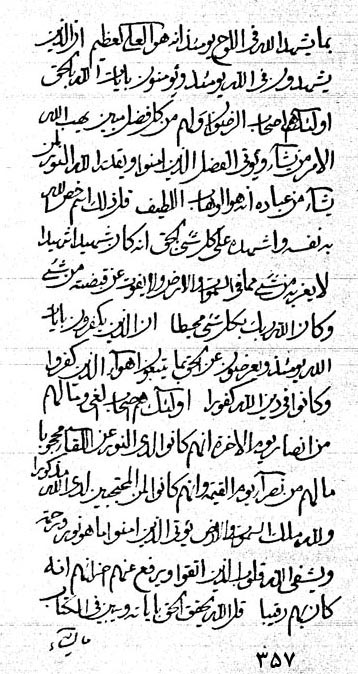 بما يشهد الله في اللوح يومئذ انه هو العلي العظيم ان الذين
يشهدون في الله يومئذ ويؤمنون بايات الله بالحق
اولئك هم اصحاب الرضوان ولهم من كل فضل مبين يهب الله
الامر من يشاء ويؤتي الفضل الذين امنوا ويقذف الله النور لمن
يشاء من عباده انه هو الوهاب اللطيف قل ذلك اسم خص الله
به نفسه واشهده على كل شيء بالحق انه كان شهيدا شهيدا
لا يعزب من شيء مما في السموات والارض ولا يفوت عن قبضته من شيء
وكان الله ربك بكل شيء محيطا ان الذين يكفرون بايات
الله يومئذ ويعرضون عن الحق بما يتبعون اهواء الذين كفروا
وكانوا في دين الله كفورا اولئك هم اصحاب لغي وما لهم
من انصار يوم الاخرة انهم كانوا لدى النور عن اللقاء محجوبا
ما لهم من نصر يوم القيمة وانهم كانوا لمن المحتجبين لدى الله مذكورا
ولله ملك السموات والارض يؤتي الذين امنوا ما هو نور ورحمة
ويشفي الله قلوب الذين اتقوا ويرفع عنهم احزانهم انه
كان بهم رقيبا قل الله يحق الحق باياته ويبين في الكتاب
ما يشاء
٣٥٧